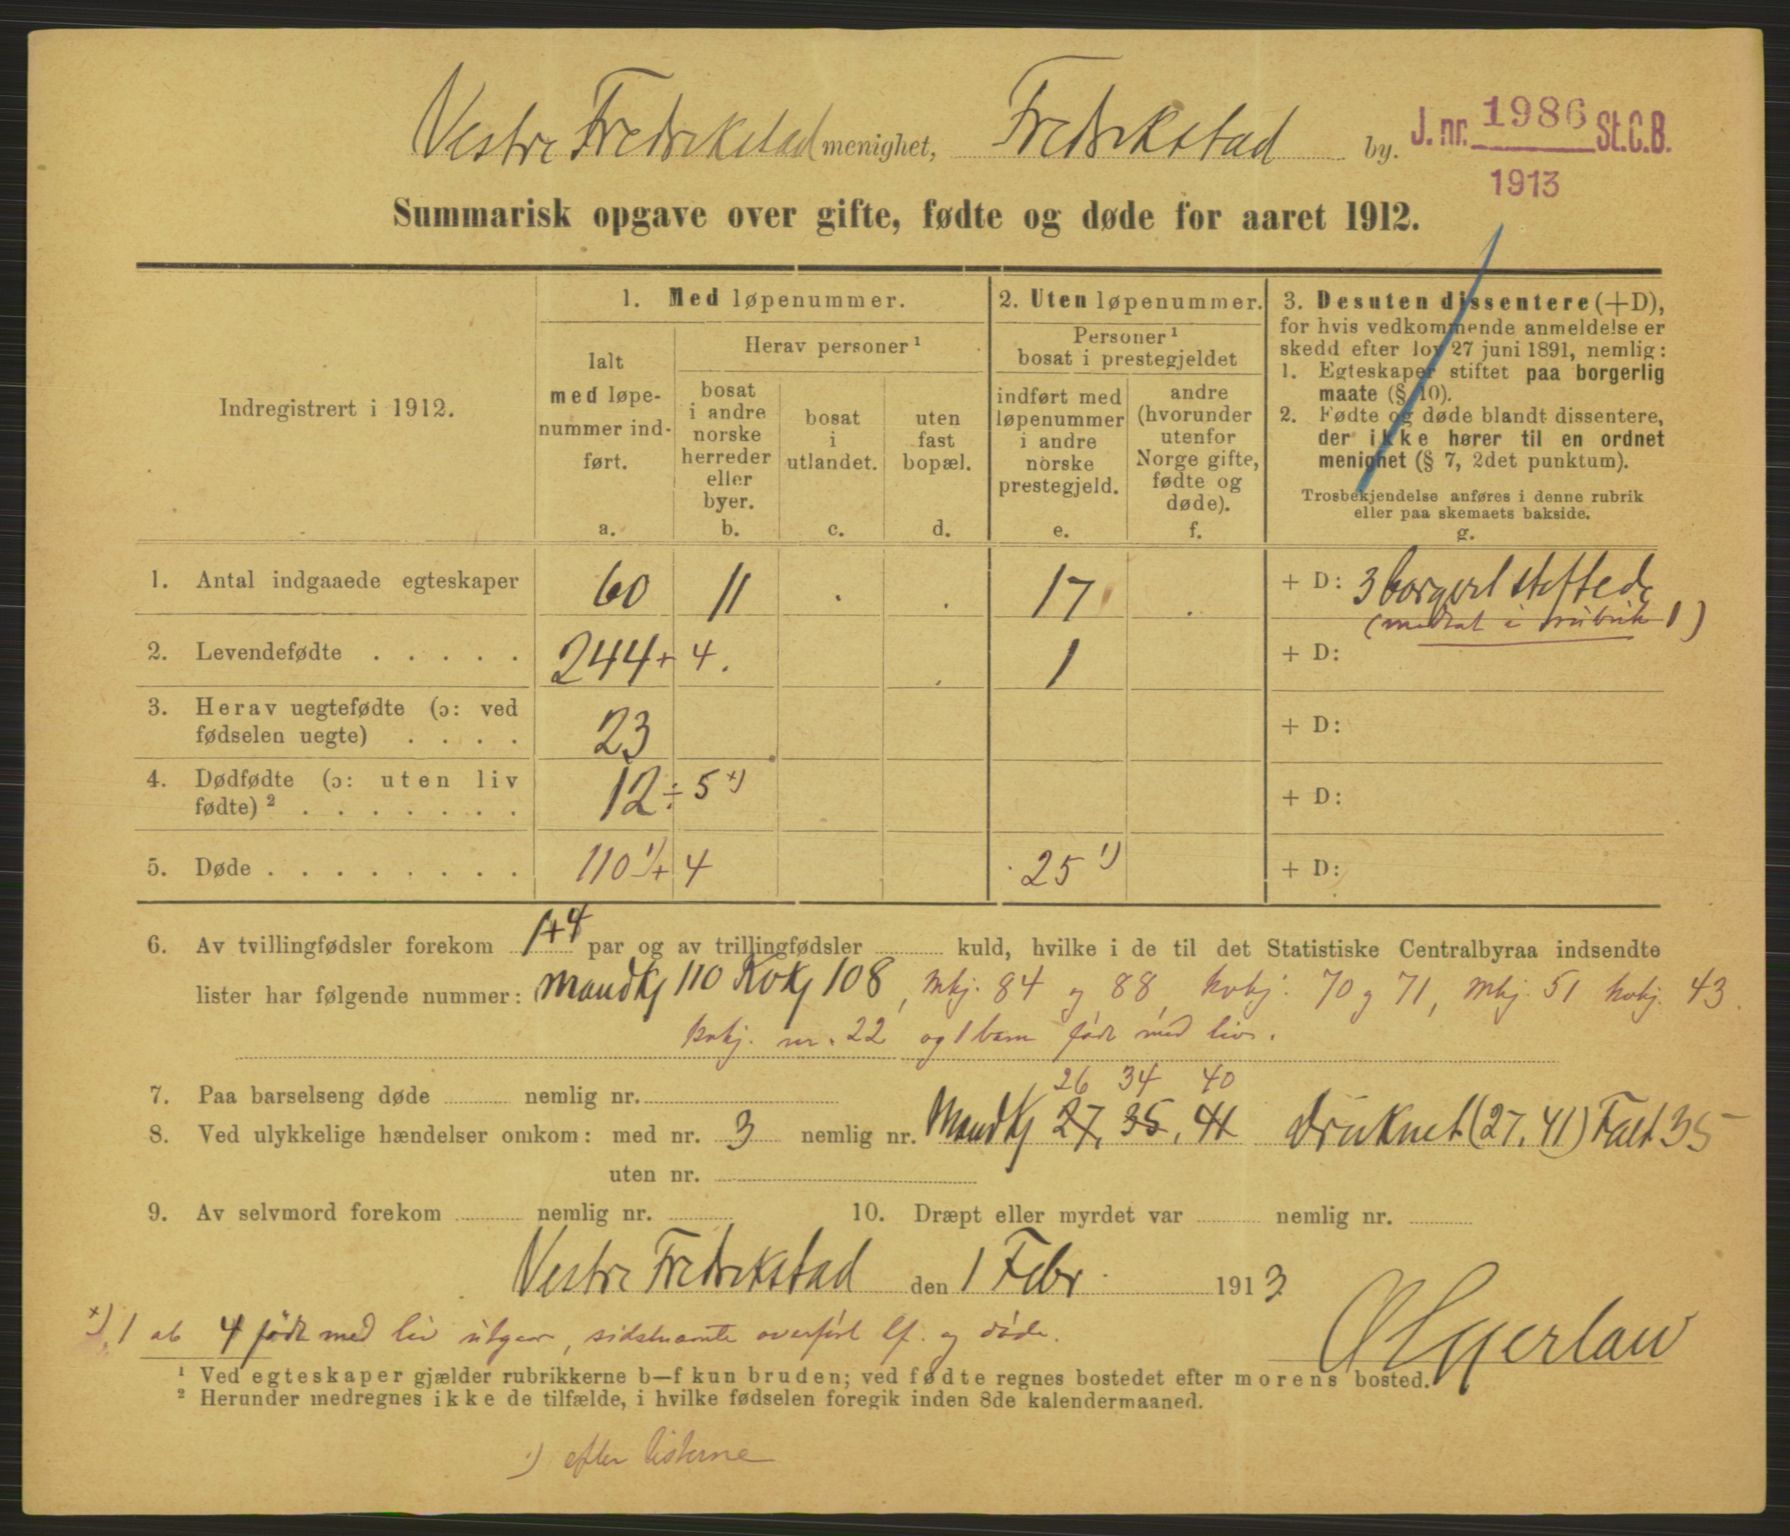 Vestre Fredrikstad menighet, Fredrikstad by. J. nr. 1986 St.C.B.
1913
Summarisk opgave over gifte, fødte og døde for aaret 1912.
Indregistrert i 1912.
1. Med løpenummer.
Ialt med løpenummer indført.
a.
Herav personer¹
bosat i andre norske herreder eller byer.
b.
bosat i utlandet.
c.
uten fast bopæl.
d.
2. Uten løpenummer.
Personer¹ bosat i prestegjeldet
indført med løpenummer i andre norske prestegjeld.
e.
andre (hvorunder utenfor Norge gifte, fødte og døde).
f.
3. Desuten dissentere (+D),
for hvis vedkommende anmeldelse er
skedd efter lov 27 juni 1891, nemlig:
1. Egteskaper stiftet paa borgerlig
maate (§ 10).
2. Fødte og døde blandt dissentere,
der ikke hører til en ordnet
menighet (§ 7, 2det punktum).
Trosbekjendelse anføres i denne rubrik
eller paa skemaets bakside.
g.
1. Antal indgaaede egteskaper 60 11 . . 17 . + D: 3 borgerl stiftede
(medtat i rubrik 1)
2. Levendefødte . . . . . 244 + 4. . 1 + D:
3. Herav uegtefødte (ɔ: ved
fødselen uegte) . . . . 23 + D:
4. Dødfødte (ɔ: uten liv
fødte)² . . . . . . . 12 ÷ 5 ×) + D:
5. Døde . . . . . . . . 110 ¹) + 4 25 ¹) + D:
6. Av tvillingfødsler forekom 1+4 par og av trillingfødsler kuld, hvilke i de til det Statistiske Centralbyraa indsendte
lister har følgende nummer: Mandkj 110 Kvkj 108, Mkj. 84 og 88, kvkj. 70 og 71, Mkj. 51 kvkj. 43.
kvkj. nr. 22 og 1 barn født med liv.
26 34 40
7. Paa barselseng døde nemlig nr.
8. Ved ulykkelige hændelser omkom: med nr. 3 nemlig nr. Mandkj 27, 35, 41 druknet (27, 41) Falt 35
uten nr.
9. Av selvmord forekom nemlig nr. 10. Dræpt eller myrdet var nemlig nr.
Vestre Fredrikstad den 1 Febr. 1913
×) 1 ab 4 født med liv utgaar, sidstnævnte overført lf. og døde.
¹ Ved egteskaper gjælder rubrikkerne b—f kun bruden; ved fødte regnes bostedet efter morens bosted.
² Herunder medregnes ikke de tilfælde, i hvilke fødselen foregik inden 8de kalendermaaned.
¹) efter listerne